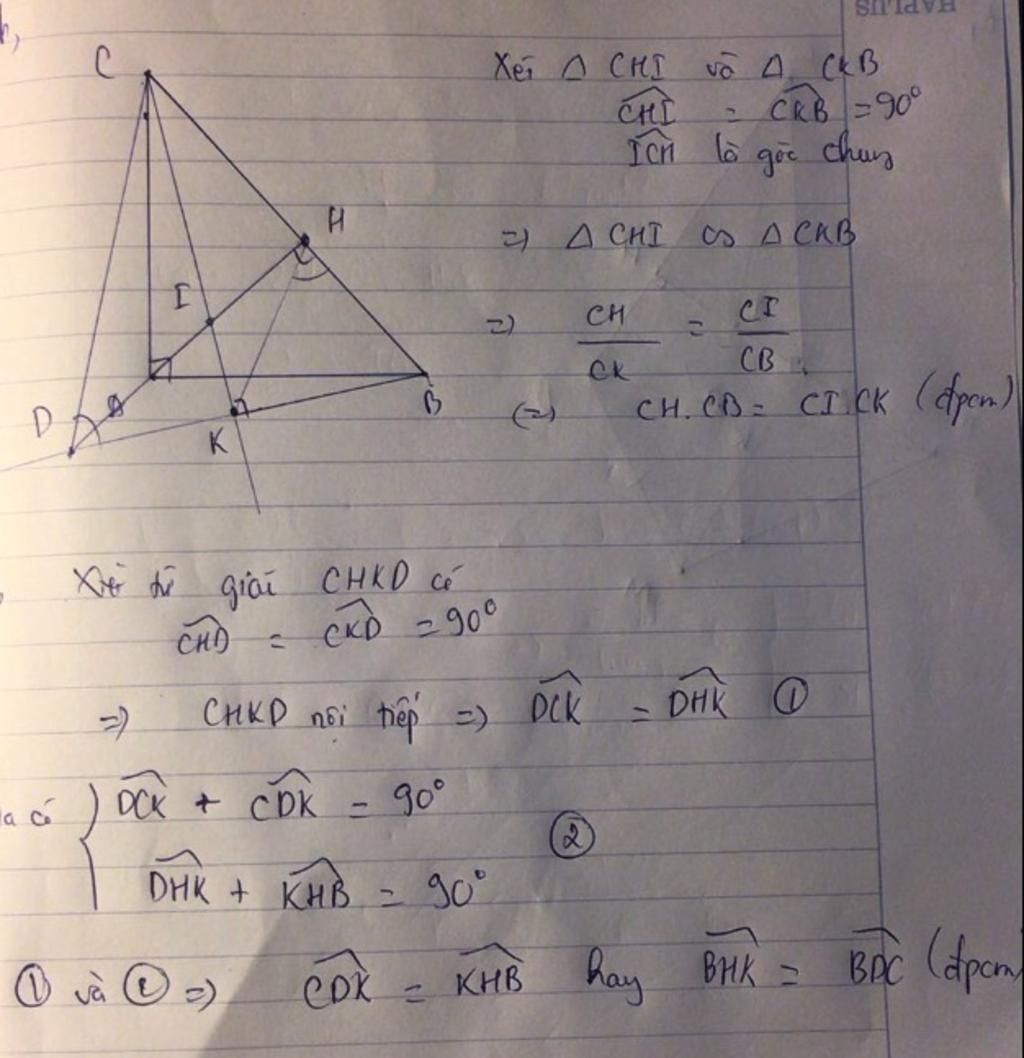 HAPLUS
C
H
I
D
A
K
B
Xét △ CHI và △ CKB
$\widehat{CHI}$ = $\widehat{CKB}$ = 90°
$\widehat{ICH}$ là góc chung
=> △ CHI ∽ △ CKB
=> $\frac{CH}{CK}$ = $\frac{CI}{CB}$
(=) CH.CB = CI.CK (đpcm)
Xét tứ giác CHKD có
$\widehat{CHD}$ = $\widehat{CKD}$ = 90°
=> CHKD nội tiếp => $\widehat{DCK}$ = $\widehat{DHK}$ ①
a có { $\widehat{DCK}$ + $\widehat{CDK}$ = 90°
$\widehat{DHK}$ + $\widehat{KHB}$ = 90° ②
① và ② => $\widehat{CDK}$ = $\widehat{KHB}$ hay $\widehat{BHK}$ = $\widehat{BDC}$ (đpcm